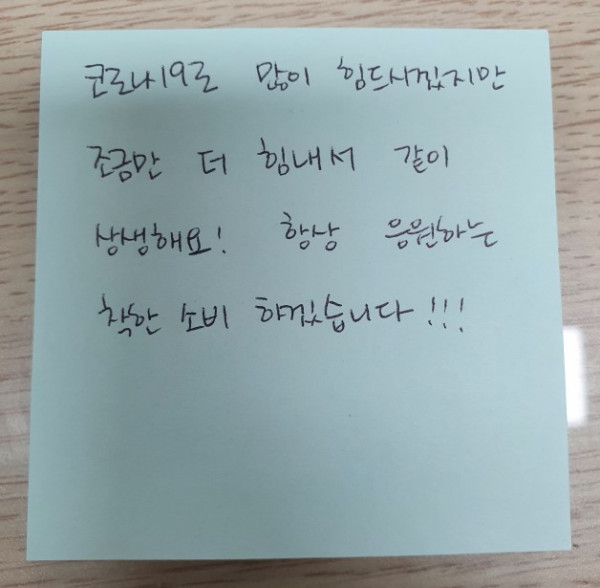 코로나19로 많이 힘드시겠지만
조금만 더 힘내서 같이
상생해요! 항상 응원하는
착한 소비 하겠습니다!!!